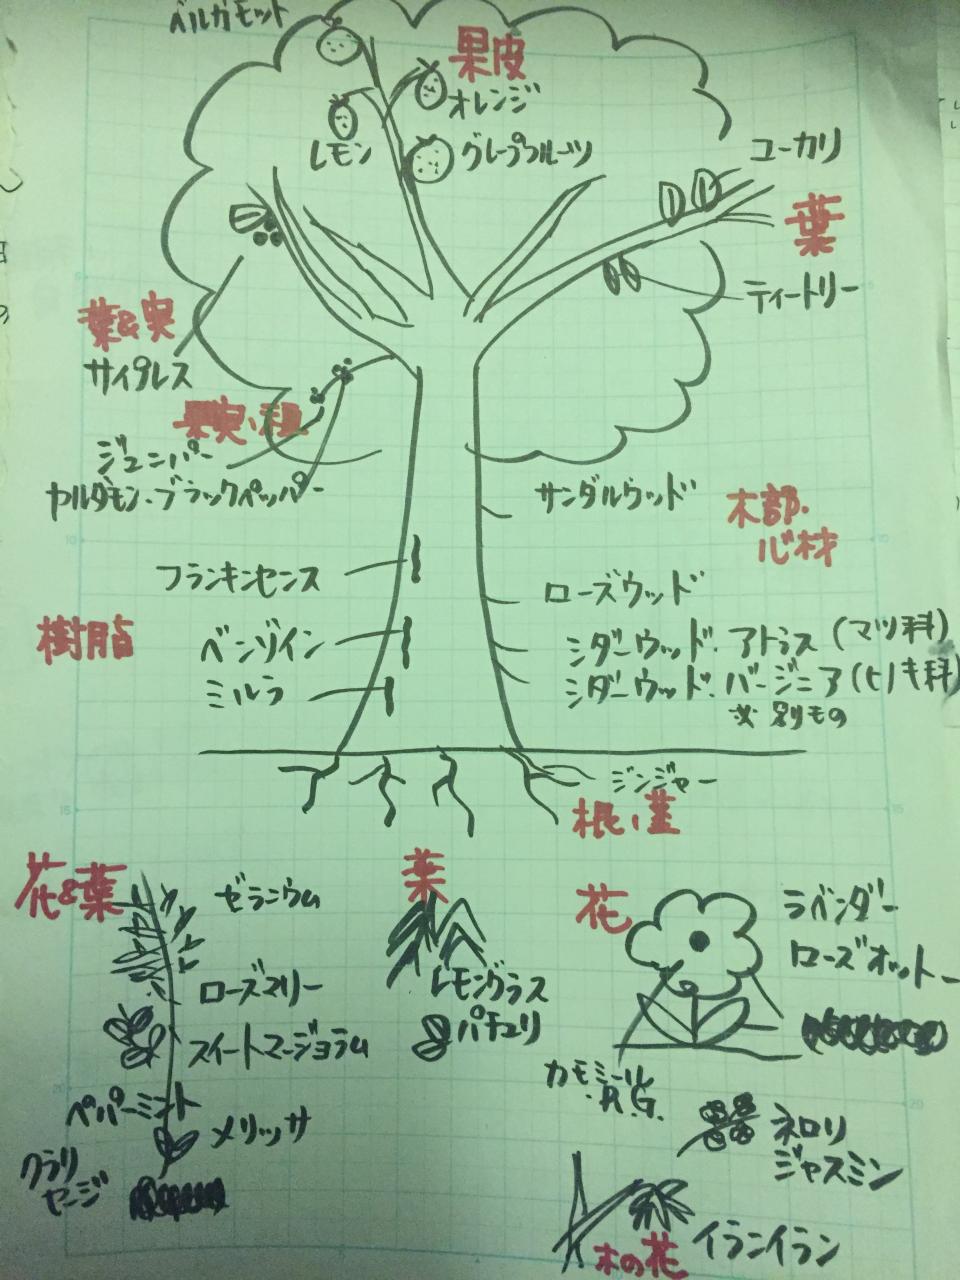 ベルガモット
果皮
オレンジ
レモン
グレープフルーツ
ユーカリ
葉
ティートリー
葉&実
サイプレス
果実・種
ジュニパー
カルダモン・ブラックペッパー
サンダルウッド
木部・
心材
フランキンセンス
ローズウッド
樹脂
ベンゾイン
シダーウッド・アトラス (マツ科)
ミルラ
シダーウッド・バージニア (ヒノキ科)
※ 別もの
ジンジャー
根・茎
花&葉
ゼラニウム
ローズマリー
スイートマージョラム
ペパーミント
メリッサ
クラリ
セージ
葉
レモングラス
パチュリ
花
ラベンダー
ローズオットー
カモミール
・R.G.
ネロリ
ジャスミン
木の花
イランイラン